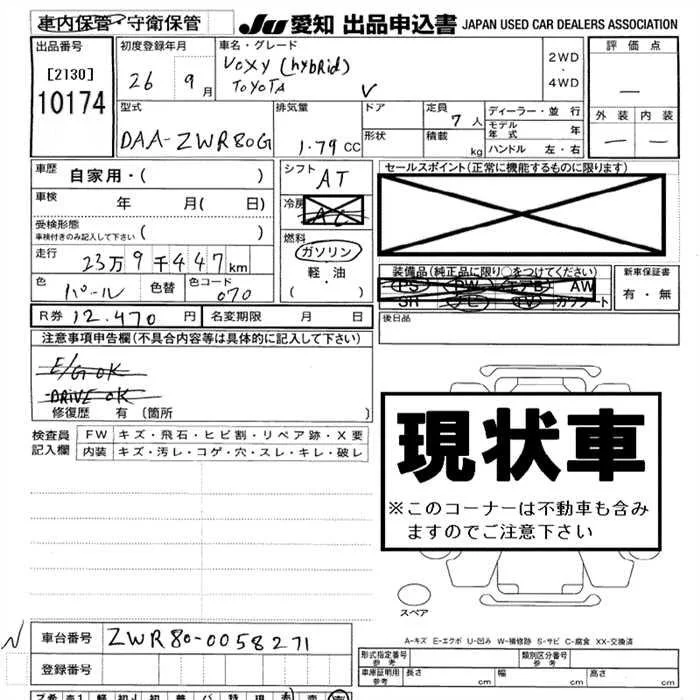 車内保管・守衛保管 JU 愛知 出品申込書 JAPAN USED CAR DEALERS ASSOCIATION
出品番号 初度登録年月 車名・グレード 評価点
[2130] 26 9月 VOXY (hybRid) 2WD・4WD
10174 TOYOTA ー
型式 排気量 ドア 定員 7人 ディーラー・並行 外装 内装
DAA-ZWR80G 1.79 CC 形状 積載 kg モデル年式 年 ー ー
ハンドル 左・右
車歴 自家用・( ) シフト AT セールスポイント(正常に機能するものに限ります)
車検 年 月( 日) 冷房 AC
受検形態 車検付きのみ記入して下さい ( ) 燃料
走行 23万9千447km ガソリン 装備品(純正品に限り○をつけてください) 新車保証書
色 パール 色替 色コード 070 軽・油 PS PW エアB AW 有・無
・( ) SR ナビ TV カワシート
R券 12.470円 名変期限 月 日 後日品
注意事項申告欄(不具合内容等は具体的に記入して下さい)
E/G OK
DRIVE OK
修復歴 有 (箇所 )
現状車
※このコーナーは不動車も含み
ますのでご注意下さい
検査員 FW キズ・飛石・ヒビ割・リペア跡・X要
記入欄 内装 キズ・汚レ・コゲ・穴・スレ・キレ・破レ
スペア
A-キズ E-エクボ U-凹み W-補修跡 S-サビ C-腐食 XX-交換済
車台番号 ZWR80-0058271
登録番号
形式指定番号 参考 類別区分番号 参考
車庫証明用 参考 長さ cm 幅 cm 高さ cm